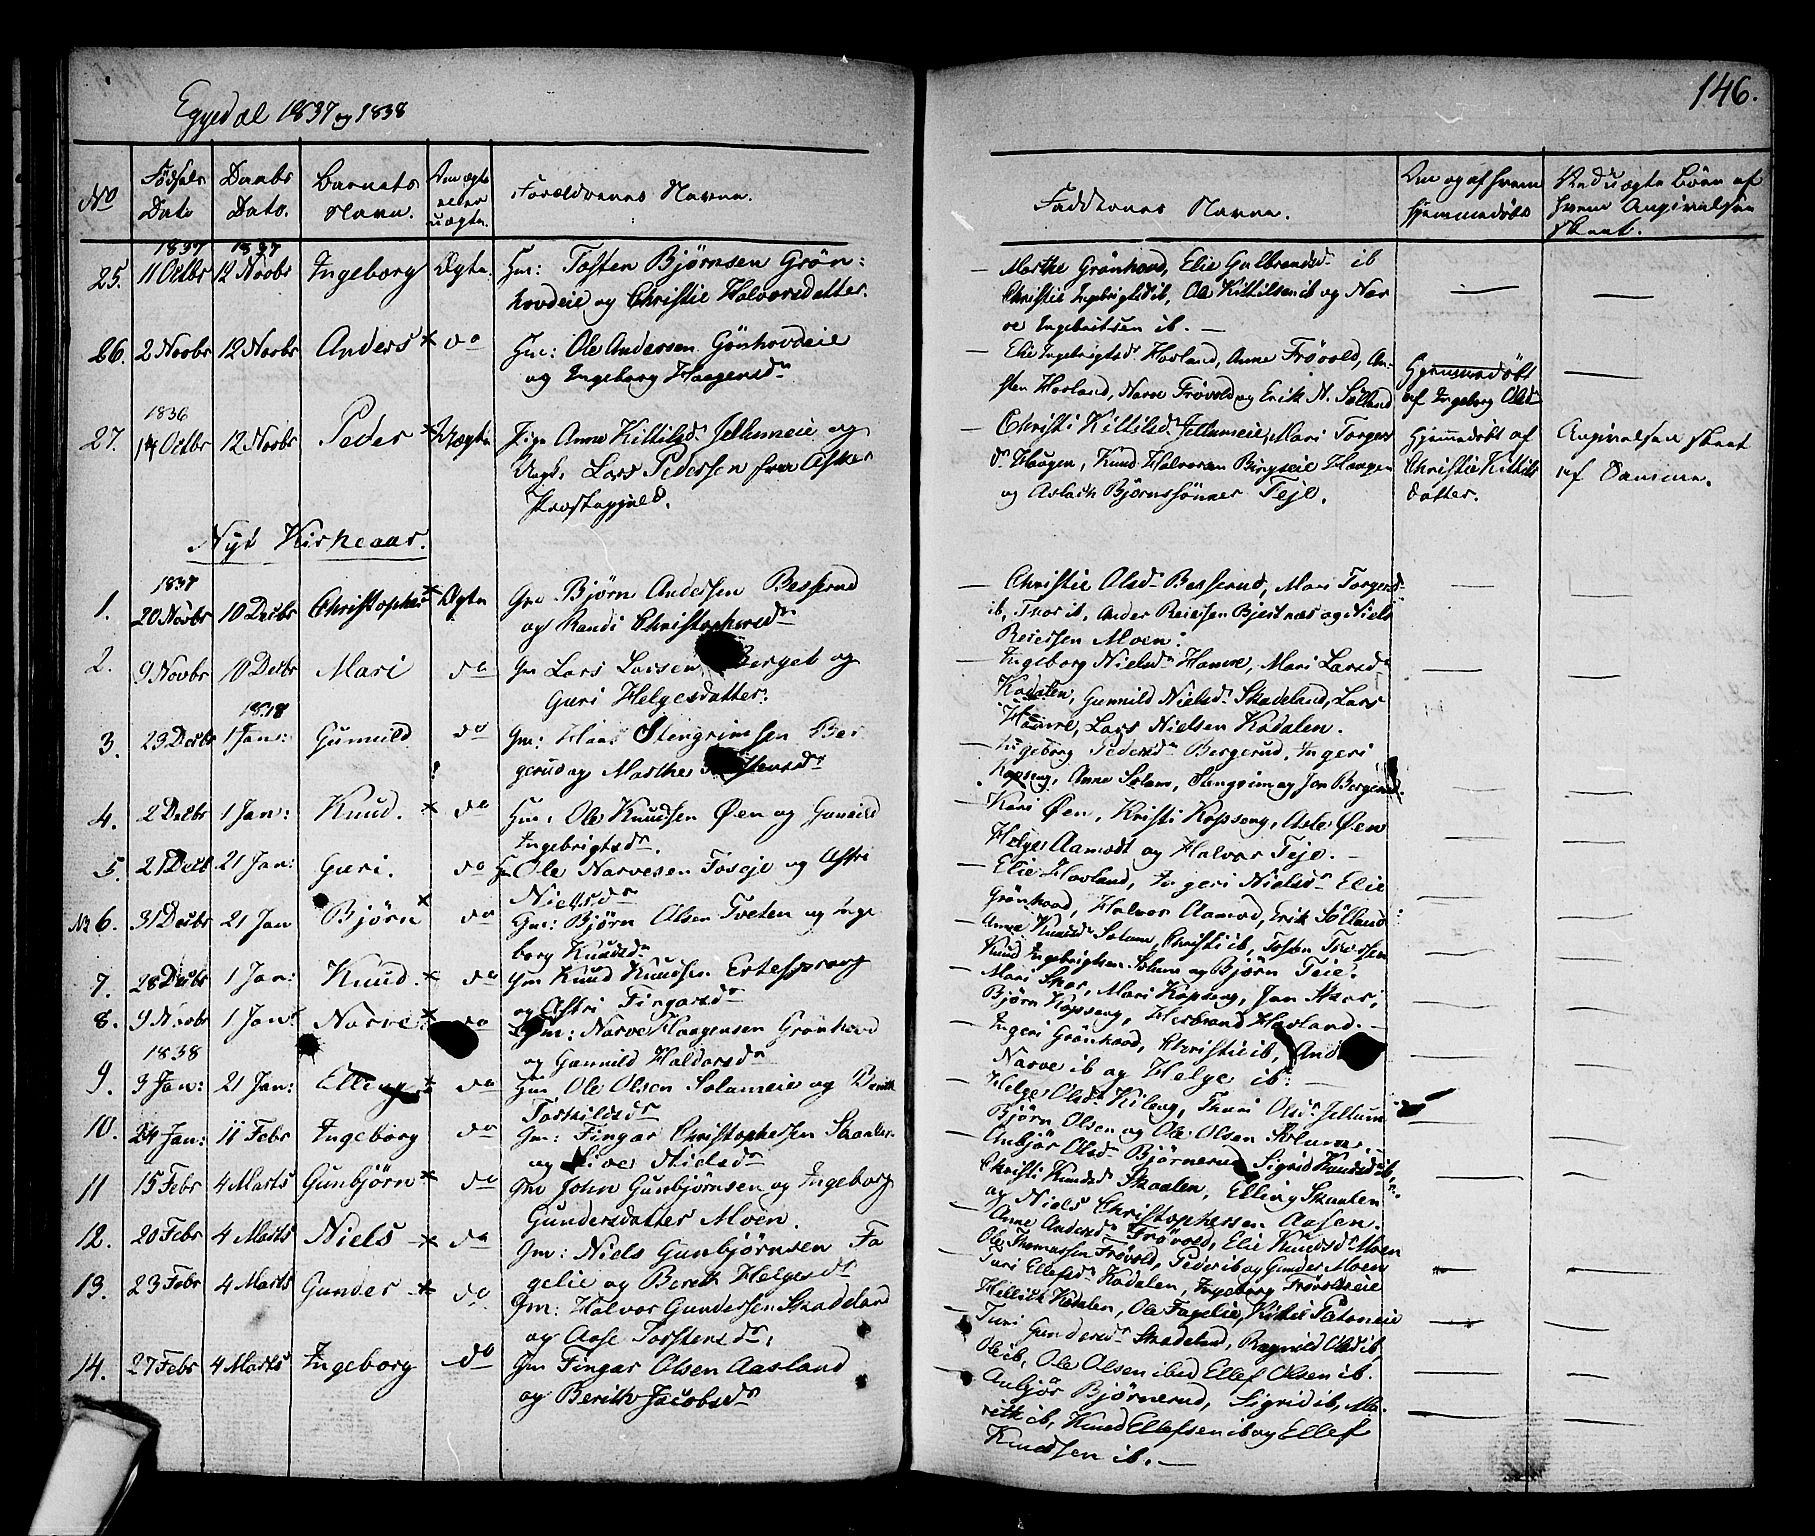 146.
Eggedal 1837 og 1838
No
Fødsels Dato
Daabs Dato.
Barnets Navn.
Om ægte eller uægte.
Forældrenes Navne.
Faddernes Navne.
Om og af hvem hjemmedøbt
Ved uægte Børn af hvem Angivelsen skeet.
1837 1837
25. 11 Octbr 12 Novbr Ingeborg Ægte. Gm: Tosten Bjørnsen Grøn:
hovdeie og Christie Halvorsdatter.
— Marthe Grönhovd, Elie Gulbrandsd. ib
Christie Ingebrigtsd ib, Ole Kittilsen ib og Nar
ve Ingebritsen ib. —
26. 2 Novbr 12 Novbr Anders × do Gm: Ole Andersen Gönhovdeie
og Ingeborg Haagensdr
— Elie Ingebrigtsdr Hovland, Anne Frövold, An-
sten Hovland, Narve Frövold og Erik N. Sølland
Hjemmedöbt
af Ingeborg Olsd
1836
27. 14 Octbr 12 Novbr Peder × Uægte Pige Anne Kittilsd. Jellumeie og
Ungk. Lars Pedersen fra Asker
Præstegjeld.
Christi Kittilsd. Jellumeie, Mari Torgers
dr Haagen, Knud Halvorsen Haagen
og Aslach Bjørnssönner Teje.
Hjemmedøbt af
Christie Kittils
datter.
Angivelsen skeet
af Samme.
Nyt Kirkeaar.
1837
1. 20 Novbr 10 Decbr Christopher × Ægte Gm Bjørn Andersen Besserud
og Randi Christophersdr
— Christie Olsdr Besserud, Mari Torgersd.
ib, Thor ib, Ander Reiersen Bjertnæs og Niels
Reiersen Moen.
2. 9 Novbr 10 Decbr Mari do Gm Lars Larsen Berget og
Guri Helgesdatter.
— Ingeborg Nielsdr Hamre, Mari Larsdr
Kodalen, Gunnild Nielsdr Skadeland, Lars
Hamre, Lars Nielsen Kodalen.
1838
3. 23 Decbr 1 Jan: Gunnild do Gm: Hans Stengrimsen Ber
gerud og Marthe
— Ingeborg Pedersdr Bergerud, Ingeri
Kopseng, Anne Solum, Stengrim og Jon Bergerud.
4. 2 Decbr 1 Jan: Knud. × do Gm: Ole Knudsen Øen og Gunild
Ingebrigtsdr.
— Kari Øen, Kristi Kopseng, Asle Øen
Helge Aamodt og Halvor Teje. —
5. 21 Decbr 21 Jan: Guri. do Gm Ole Narvesen Foseje og Astri
Nielsdr
— Elie Hovland, Ingeri Nielsdr Elie
Grönhovd, Halvor Aamod, Erik Sölland
6. 31 Decbr 21 Jan Björn × do Gm: Bjørn Olsen Tveten og Inge
borg Knudsdr
— Anne Knudsdr Solum, Christi ib, Tosten Thorsen
Knud Ingebrigtsen Solum og Björn Teie.
7. 28 Decbr 1 Jan: Knud. × do Gm Knud Knudsen Ertesprang
og Astri Fingarsdr
— Mari Skar, Mari Kopseng, Jon Skar,
Björn Kopseng, Herbrand Hovland. —
8. 9 Novbr 1 Jan: Narve × do Gm: Narve Haagensen Grönhovd
og Gunnild Haldorsdr
— Ingeri Grönhovd, Christie ib,
Narve ib og Helge ib: —
1838
9. 3 Jan: 21 Jan: Elling × do Gm Ole Olsen Solumeie og Berith
Torkildsdr
— Helge Olsdr Kileng, Thuri Olsdr Jellum
Björn Olsen og Ole Olsen Solum. —
10. 24 Jan: 11 Febr Ingeborg do Gm: Fingar Christophersen Skaalen
og Live Nielsdr
— Anbjör Olsdr Björnerud, Sigrid Knudsdr ib,
Christi Knudsd Skaalen, Elling Skaalen
og Niels Christophersen Aasen.
11 15 Febr 4 Marts Gunbjörn × do Gm John Gunbjörnsen og Ingeborg
Gundersdatter Moen.
— Anne Andersdr Frövold, Elie Knudsd Moen
Ole Thomassen Frövold, Peder ib og Gunder Moen
12. 20 Febr 4 Marts Niels × do Gm: Niels Gunbjörnsen Fa
gelie og Bereth Helgesdr
Turi Ellefsdr Kodalen, Ingeborg Frövoldseie
Hellik Kodalen, Ole Fagelie,
13. 23 Febr 4 Marts Gunder × do. Gm: Halvor Gundersen Skadeland
og Aase Torstensdr.
— Turi Gundersdr Skadeland, Ragnild Olsd ib,
Ole ib, Ole Olsen ib ud Ellef Olsen ib.
14. 27 Febr 4 Marts Ingeborg do Gm Fingar Olsen Aasland
og Berith Jacobsdr
— Anbjör Björnerud, Sigrid ib, Ma-
rith ib, Knud Ellefsen ib og Ellef
Knudsen ib. —